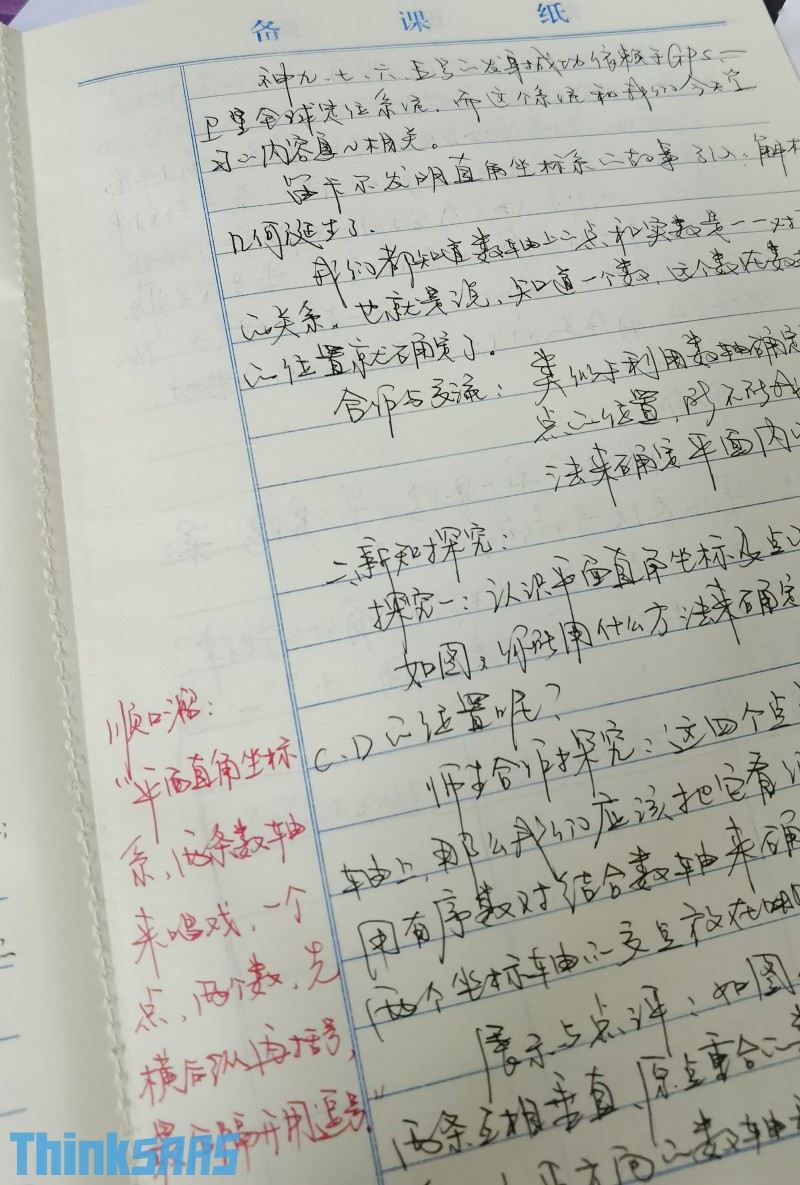 备课纸
神九、七、六、五号的发射成功依赖于GPS—
卫星全球定位系统.而这个系统和我们今天学
习的内容息息相关。
笛卡尔发明直角坐标系的故事引入:解析
几何诞生了.
我们都知道数轴上的点和实数是一一对
的关系.也就是说,知道一个数,这个数在数
的位置就确定了.
合作与交流:类似于利用数轴确定
点的位置,能不能
法来确定平面内
二、新知探究:
探究一:认识平面直角坐标及点
如图,你能用什么方法来确定
C、D的位置呢?
师生合作探究:这四个点
轴上,那么我们应该把它看
用有序数对结合数轴来确
两个坐标轴的交点放在哪
展示与点评:如图
两条互相垂直、原点重合的
正方向的数轴
顺口溜:
“平面直角坐标
系,两条数轴
来唱戏,一个
点,两个数,先
横后纵再括号,
最后隔开用逗号.”
ThinkSAAS